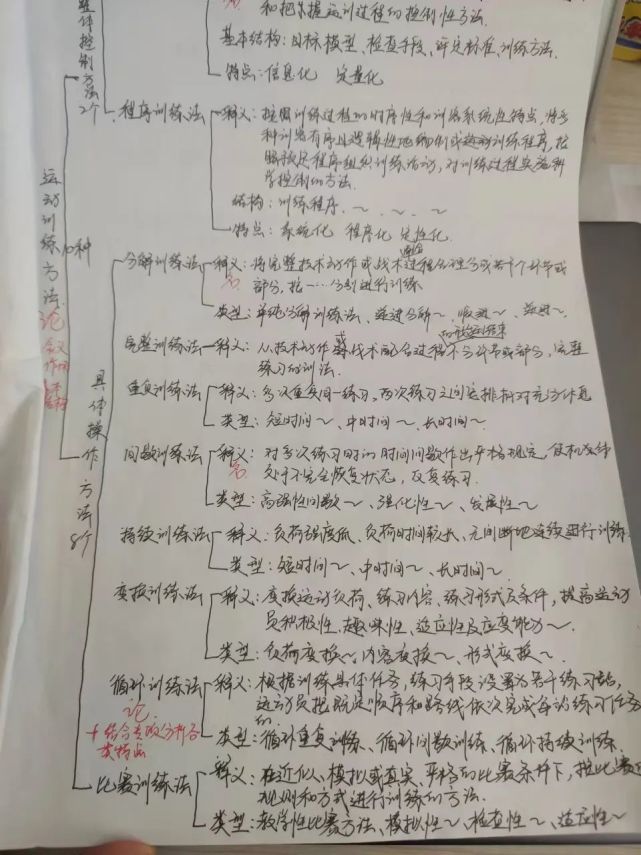 整体控制方法2个
和把握运训过程的控制性方法.
基本结构:目标模型、检查手段、评定标准、训练方法.
特点:信息化 定量化
程序训练法
释义:按照训练过程的时序性和训练内容系统性特点,将多
种训练内容有序且逻辑性地编制成训练程序,按
照预定程序组织训练活动,对训练过程实施科
学控制的方法.
结构:训练程序、~、~、~
特点:系统化 程序化 定性化.
运动训练方法
论
10种
具体操作方法8个
分解训练法
释义:将完整技术动作或战术配合过程合理分成若干个环节或
名
部分,按……分别进行训练
类型:单纯分解训练法、递进分解~、顺进~、逆进~.
完整训练法
释义:从技术动作或战术配合过程的开始到结束不分环节或部分,完整
练习的训法.
重复训练法
释义:多次重复同一练习,两次练习之间安排相对充分休息
类型:短时间~、中时间~、长时间~.
间歇训练法
释义:对多次练习时的时间间歇作出严格规定,使机体持续
名
处于不完全恢复状态,反复练习.
类型:高强性间歇~、强化性~、发展性~
持续训练法
释义:负荷强度低、负荷时间较长、无间断地连续进行训练
类型:短时间~、中时间~、长时间~
变换训练法
释义:变换运动负荷、练习内容、练习形式及条件,提高运动
员积极性、趣味性、适应性及应变能力~.
类型:负荷变换~、内容变换~、形式变换~.
循环训练法
论
+结合专项分析各
类特点
释义:根据训练具体任务,练习手段设置为若干练习站,
运动员按既定顺序和路线依次完成每站练习任务
的.
类型:循环重复训练、循环间歇训练、循环持续训练.
比赛训练法
释义:在近似、模拟或真实、严格的比赛条件下,按比赛
规则和方式进行训练的方法.
类型:教学性比赛方法、模拟性~、检查性~、适应性~